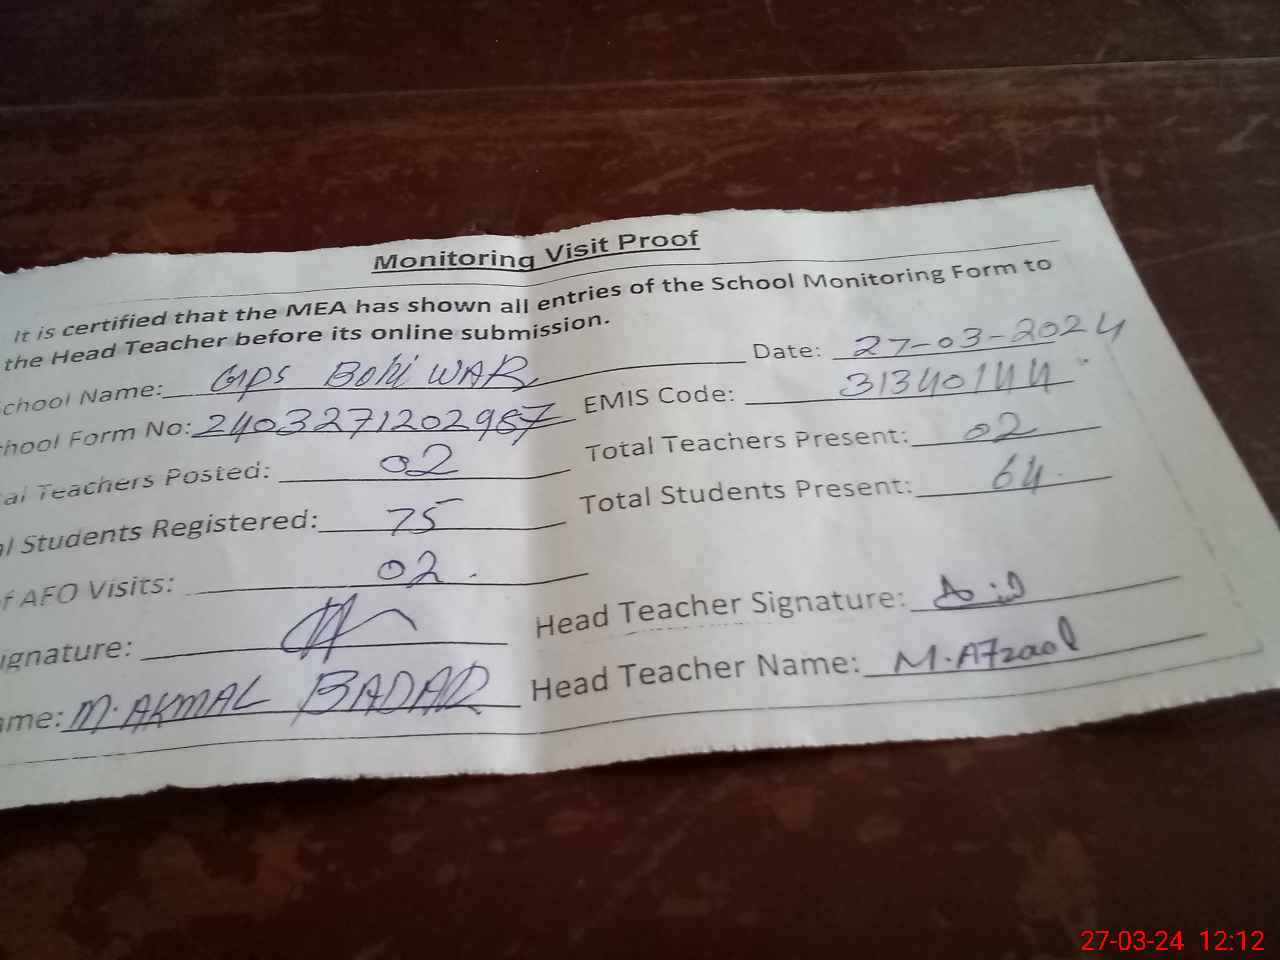 Monitoring Visit Proof
It is certified that the MEA has shown all entries of the School Monitoring Form to
the Head Teacher before its online submission.
chool Name: GPS Bohi WAR Date: 27-03-2024
hool Form No: 24032712029 EMIS Code: 31340144
al Teachers Posted: 02 Total Teachers Present: 02
al Students Registered: 75 Total Students Present: 64
f AFO Visits: 02
ignature: Head Teacher Signature:
ame: M. AKMAL BADAR Head Teacher Name: M. Afzaal
27-03-24 12:12